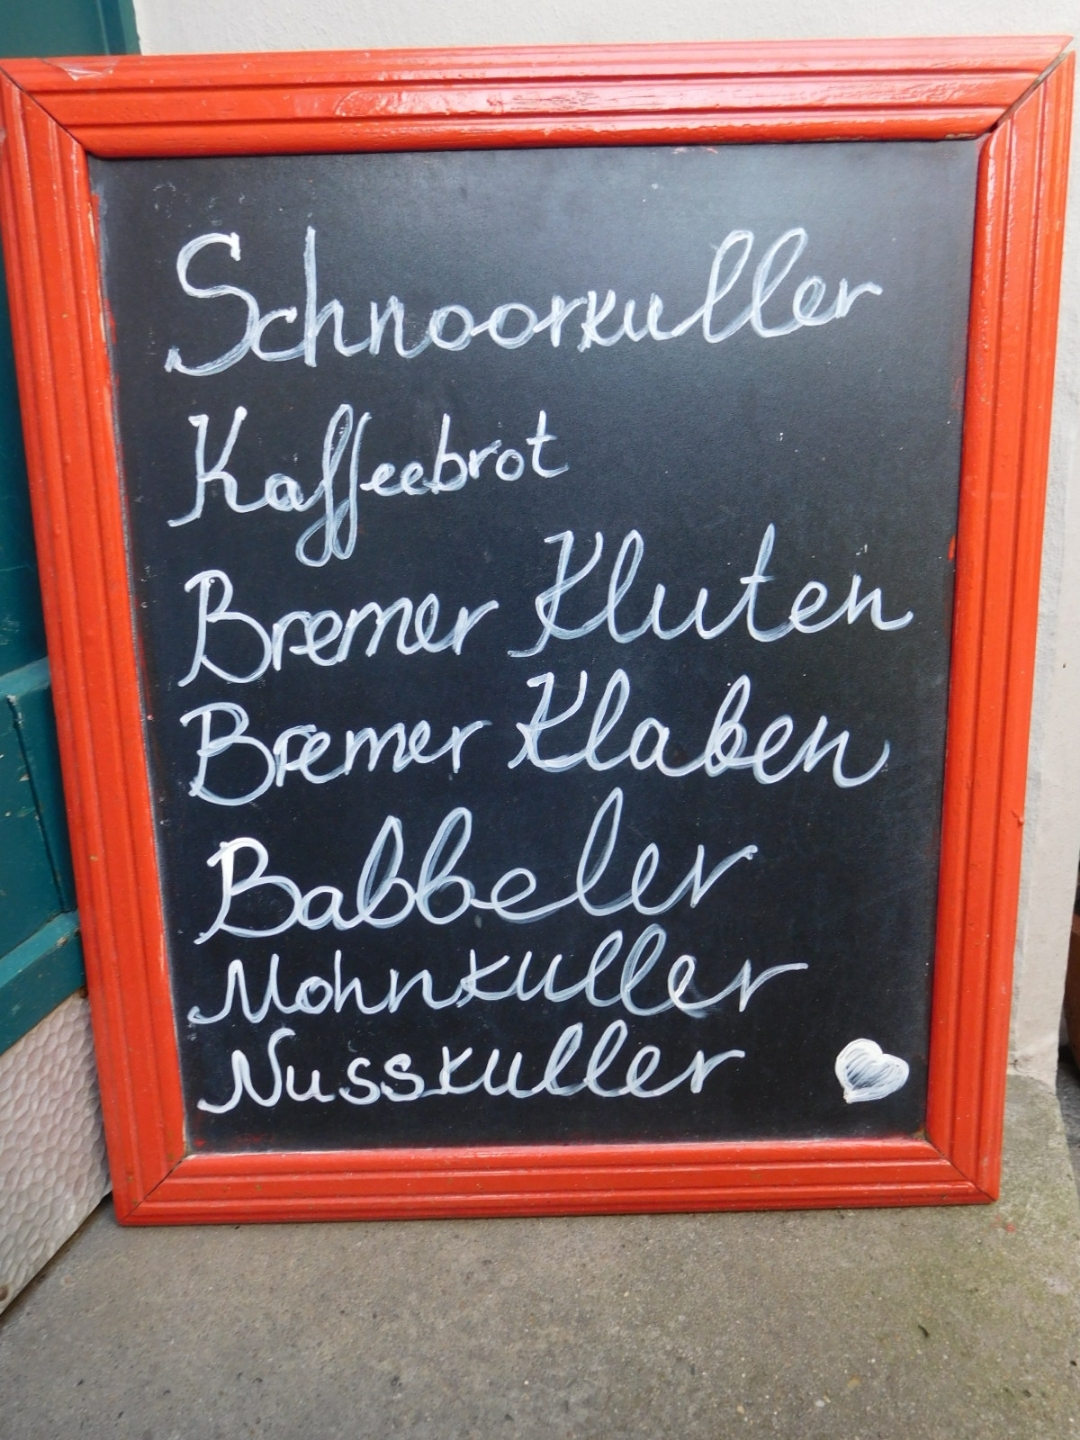 Schnoorkuller
Kaffeebrot
Bremer Kluten
Bremer Klaben
Babbeler
Mohnkuller
Nusskuller